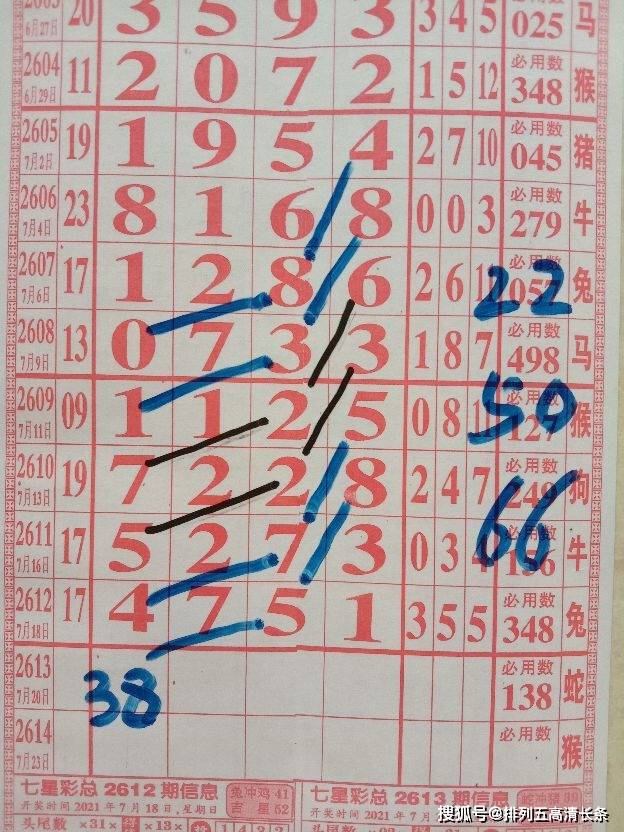 20 3 5 9 3 3 4 5 必用数 025 马
6月27日
2604 11 2 0 7 2 1 5 12 必用数 348 猴
6月29日
2605 19 1 9 5 4 2 7 10 必用数 045 猪
7月2日
2606 23 8 1 6 8 0 0 3 必用数 279 牛
7月4日
2607 17 1 2 8 6 2 6 必用数 兔 22
7月6日
2608 13 0 7 3 3 1 8 7 必用数 498 马
7月9日
2609 09 1 1 2 5 0 8 猴 50
7月11日
2610 19 7 2 2 8 2 4 7 必用数 249 狗
7月13日
2611 17 5 2 7 3 0 3 牛 66
7月16日
2612 17 4 7 5 1 3 5 5 必用数 348 兔
7月18日
2613 38 必用数 138 蛇
7月20日
2614 必用数 猴
7月23日
七星彩总 2612 期信息 兔冲鸡 41 七星彩总 2613 期信息
开奖时间 2021 年 7 月 18 日,星期日 吉 星 62 开奖时间 2021 年 7 月
头尾数 ×31× ×13× 头尾数
搜狐号@排列五高清长条